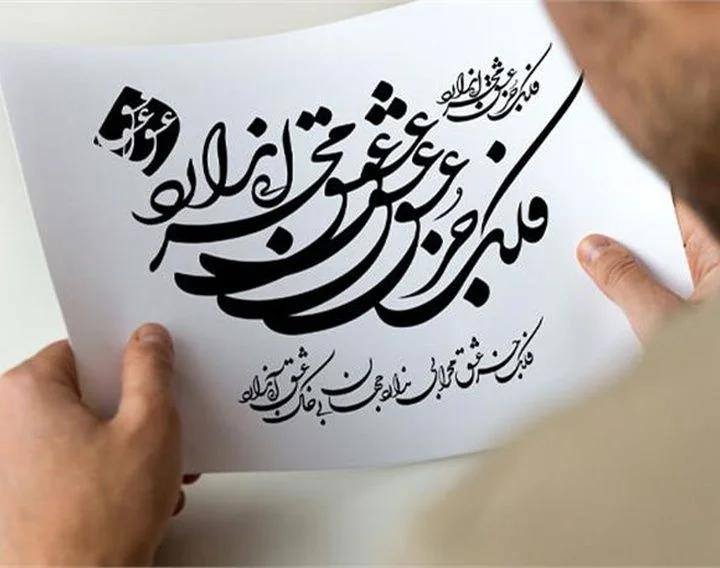 فلک جز عشق محرابی ندارد
عشق
فلک جز عشق عشق عشق محرابی ندارد
فلک جز عشق محرابی ندارد جهان بی خاک عشق آبی ندارد